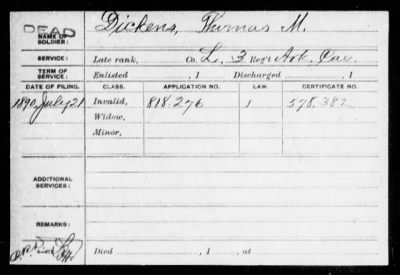 DEAD
NAME OF SOLDIER: Dickens, Thomas M.
SERVICE: Late rank, Co. L, 3 Reg't Ark. Cav.
TERM OF SERVICE: Enlisted , 1 Discharged , 1
DATE OF FILING. CLASS. APPLICATION NO. LAW. CERTIFICATE NO.
1890, July 21 Invalid, 818.276 J 578.382
Widow,
Minor,
ADDITIONAL SERVICES:
REMARKS:
Died , 1 , at